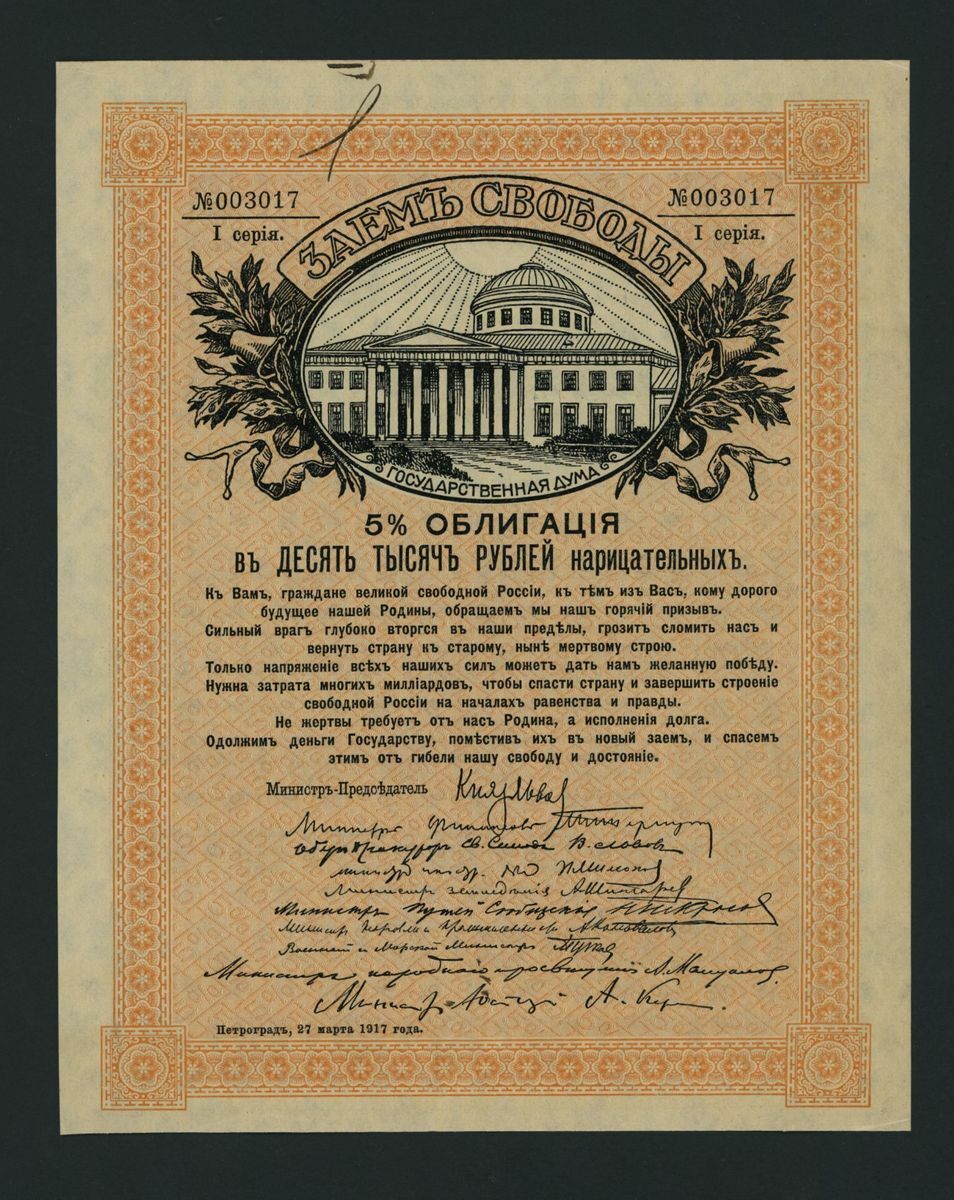 №003017
№003017
I серія.
I серія.
ЗАЕМЪ СВОБОДЫ
ГОСУДАРСТВЕННАЯ ДУМА
5% ОБЛИГАЦІЯ
въ ДЕСЯТЬ ТЫСЯЧЪ РУБЛЕЙ нарицательныхъ.
Къ Вамъ, граждане великой свободной Россіи, къ тѣмъ изъ Васъ, кому дорого
будущее нашей Родины, обращаемъ мы нашъ горячій призывъ.
Сильный врагъ глубоко вторгся въ наши предѣлы, грозитъ сломить насъ и
вернуть страну къ старому, нынѣ мертвому строю.
Только напряженіе всѣхъ нашихъ силъ можетъ дать намъ желанную побѣду.
Нужна затрата многихъ милліардовъ, чтобы спасти страну и завершить строеніе
свободной Россіи на началахъ равенства и правды.
Не жертвы требуетъ отъ насъ Родина, а исполненія долга.
Одолжимъ деньги Государству, помѣстивъ ихъ въ новый заемъ, и спасемъ
этимъ отъ гибели нашу свободу и достояніе.
Министръ-Предсѣдатель Князь Львов
Министръ финансовъ
Оберъ Прокуроръ Св. Синода В. Львовъ
Министръ земледѣлія А Шингарев
Министръ Путей Сообщенія
Министръ Торговли и Промышленности А Коноваловъ
Военный и Морской Министръ
Министръ народнаго просвѣщенія А. Мануиловъ.
Министръ Юстиціи А. Кер
Петроградъ, 27 марта 1917 года.